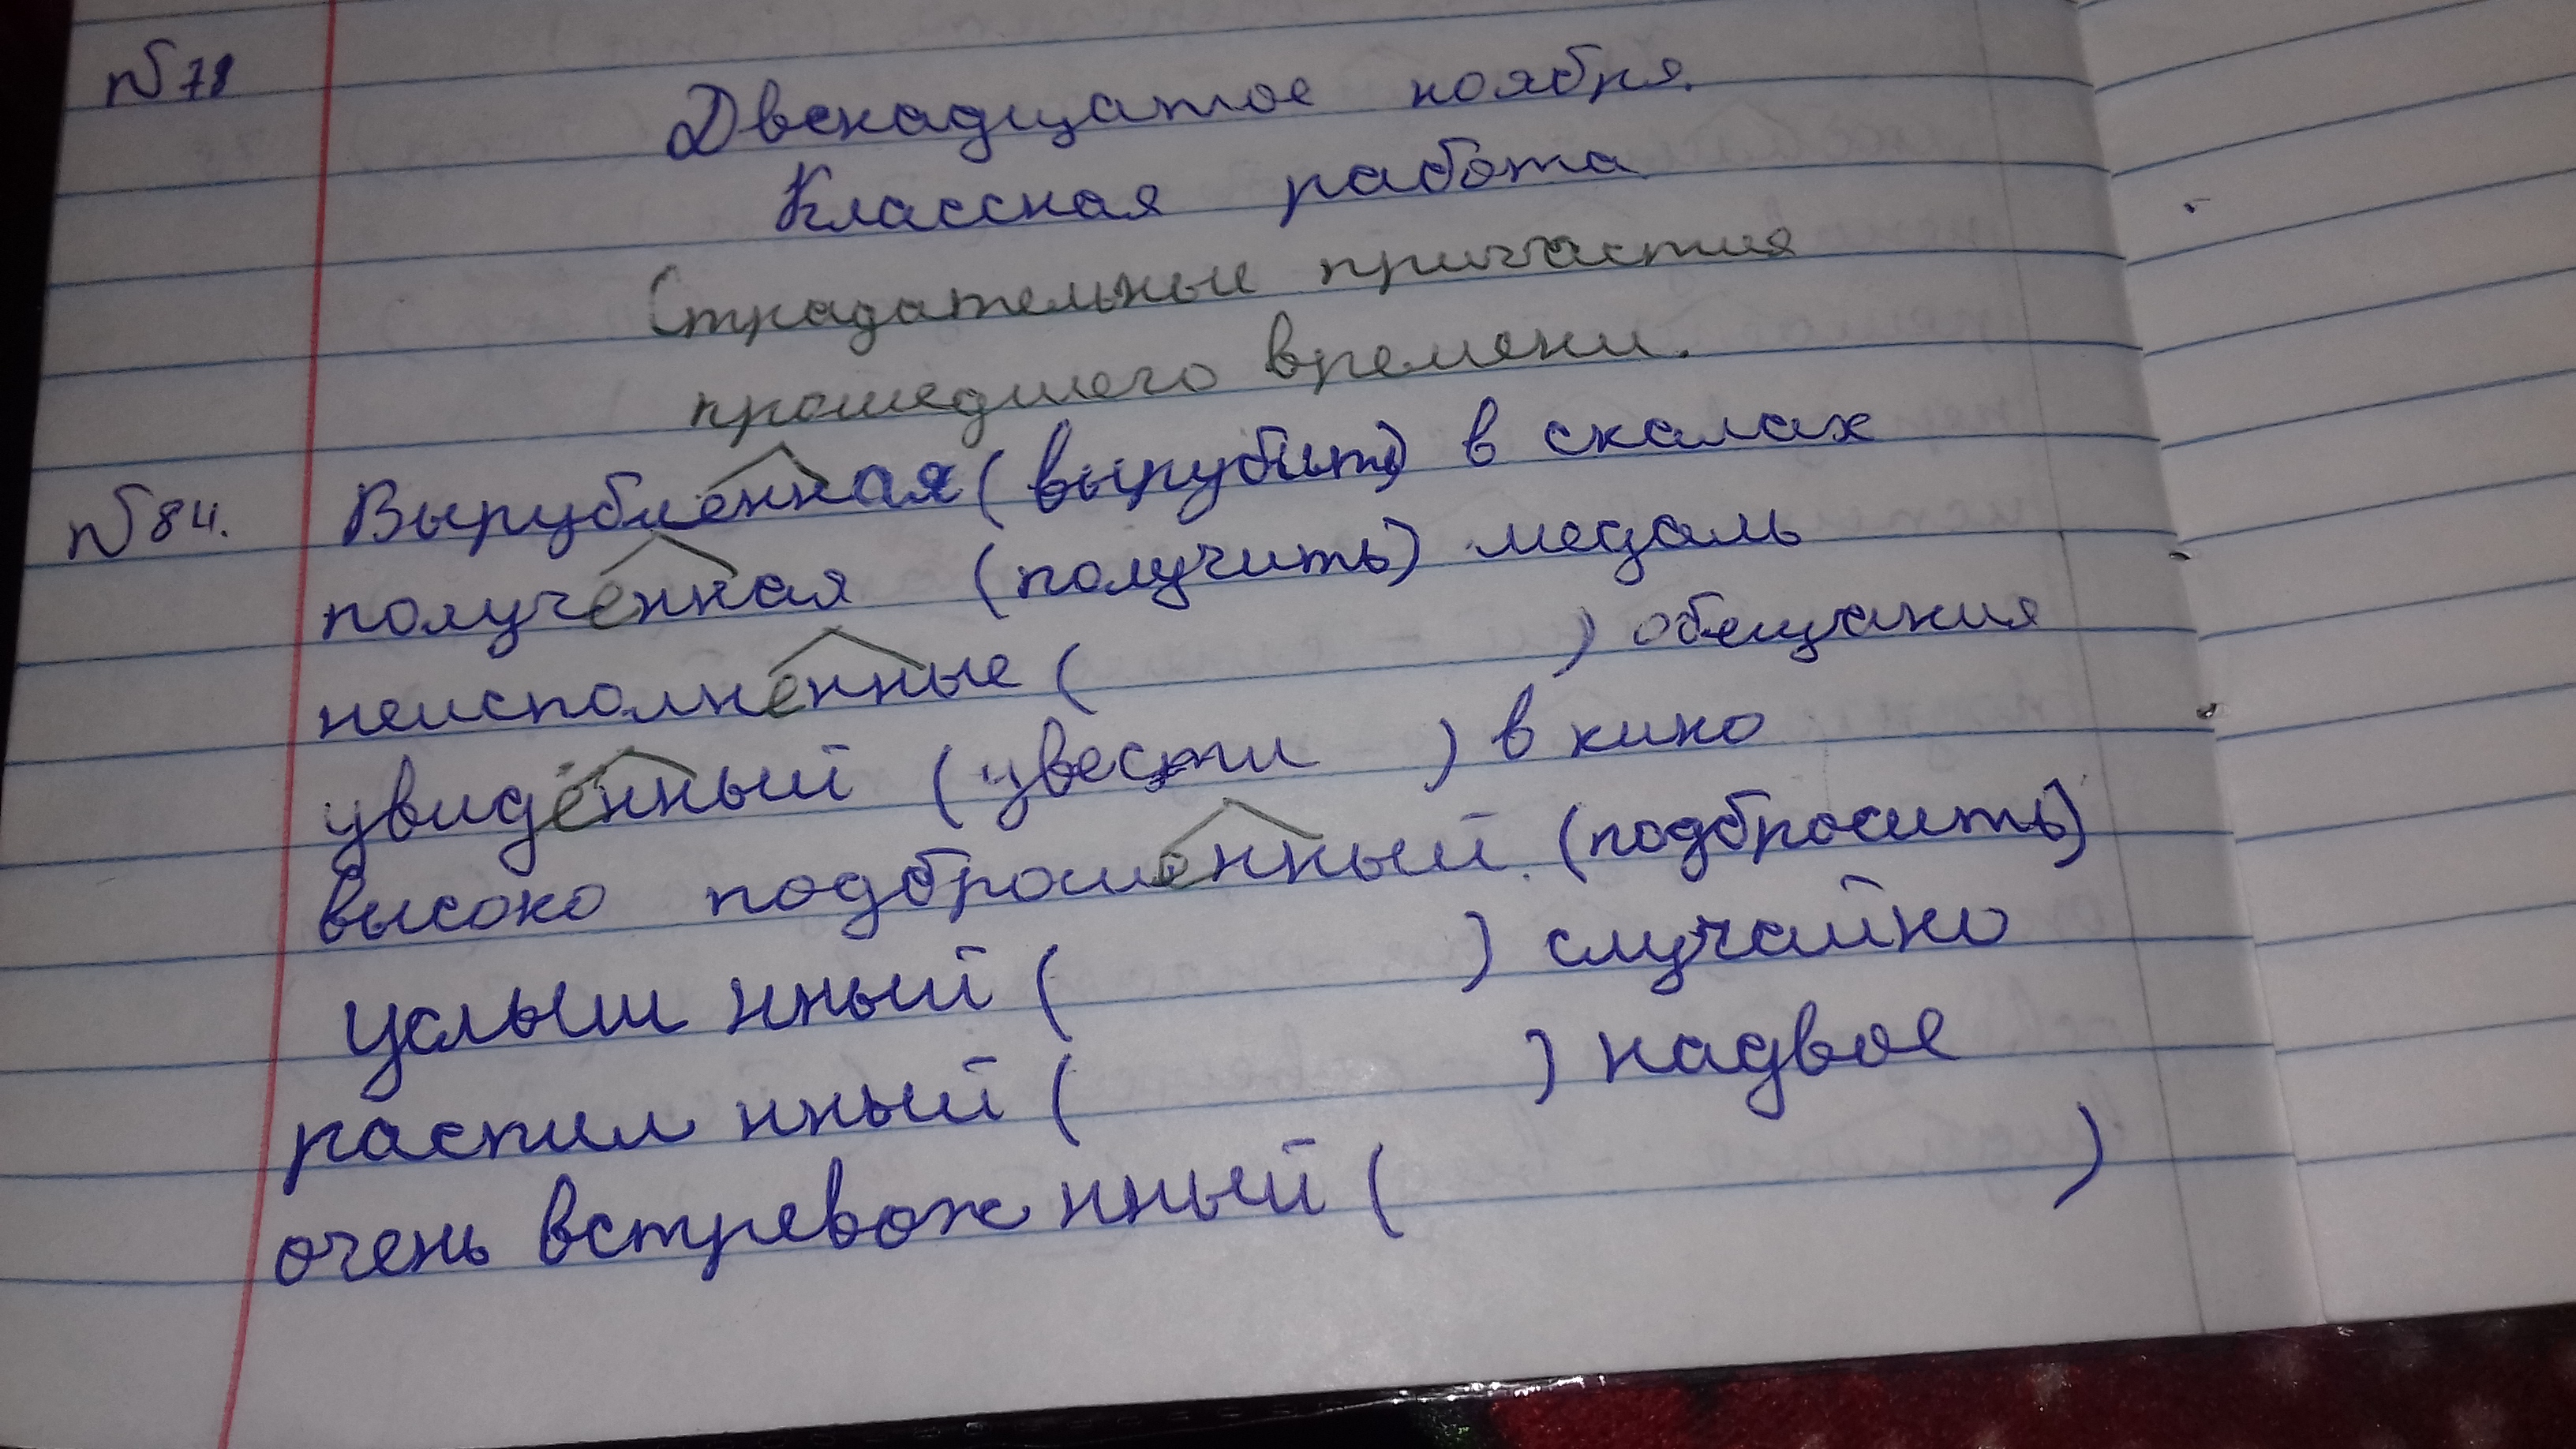 №78
Двенадцатое ноября.
Классная работа
Страдательные причастия
прошедшего времени.
№84. Вырубленная (вырубить) в скалах
полученная (получить) медаль
неисполненные ( ) обещания
увиденный (цвести ) в кино
высоко подброшенный (подбросить)
услыш нный ( ) случайно
распил нный ( ) надвое
очень встревож нный ( )